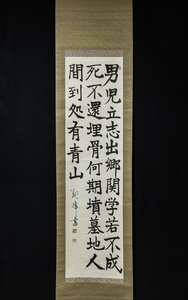 男児立志出郷関学若不成
死不還埋骨何期墳墓地人
間到処有青山